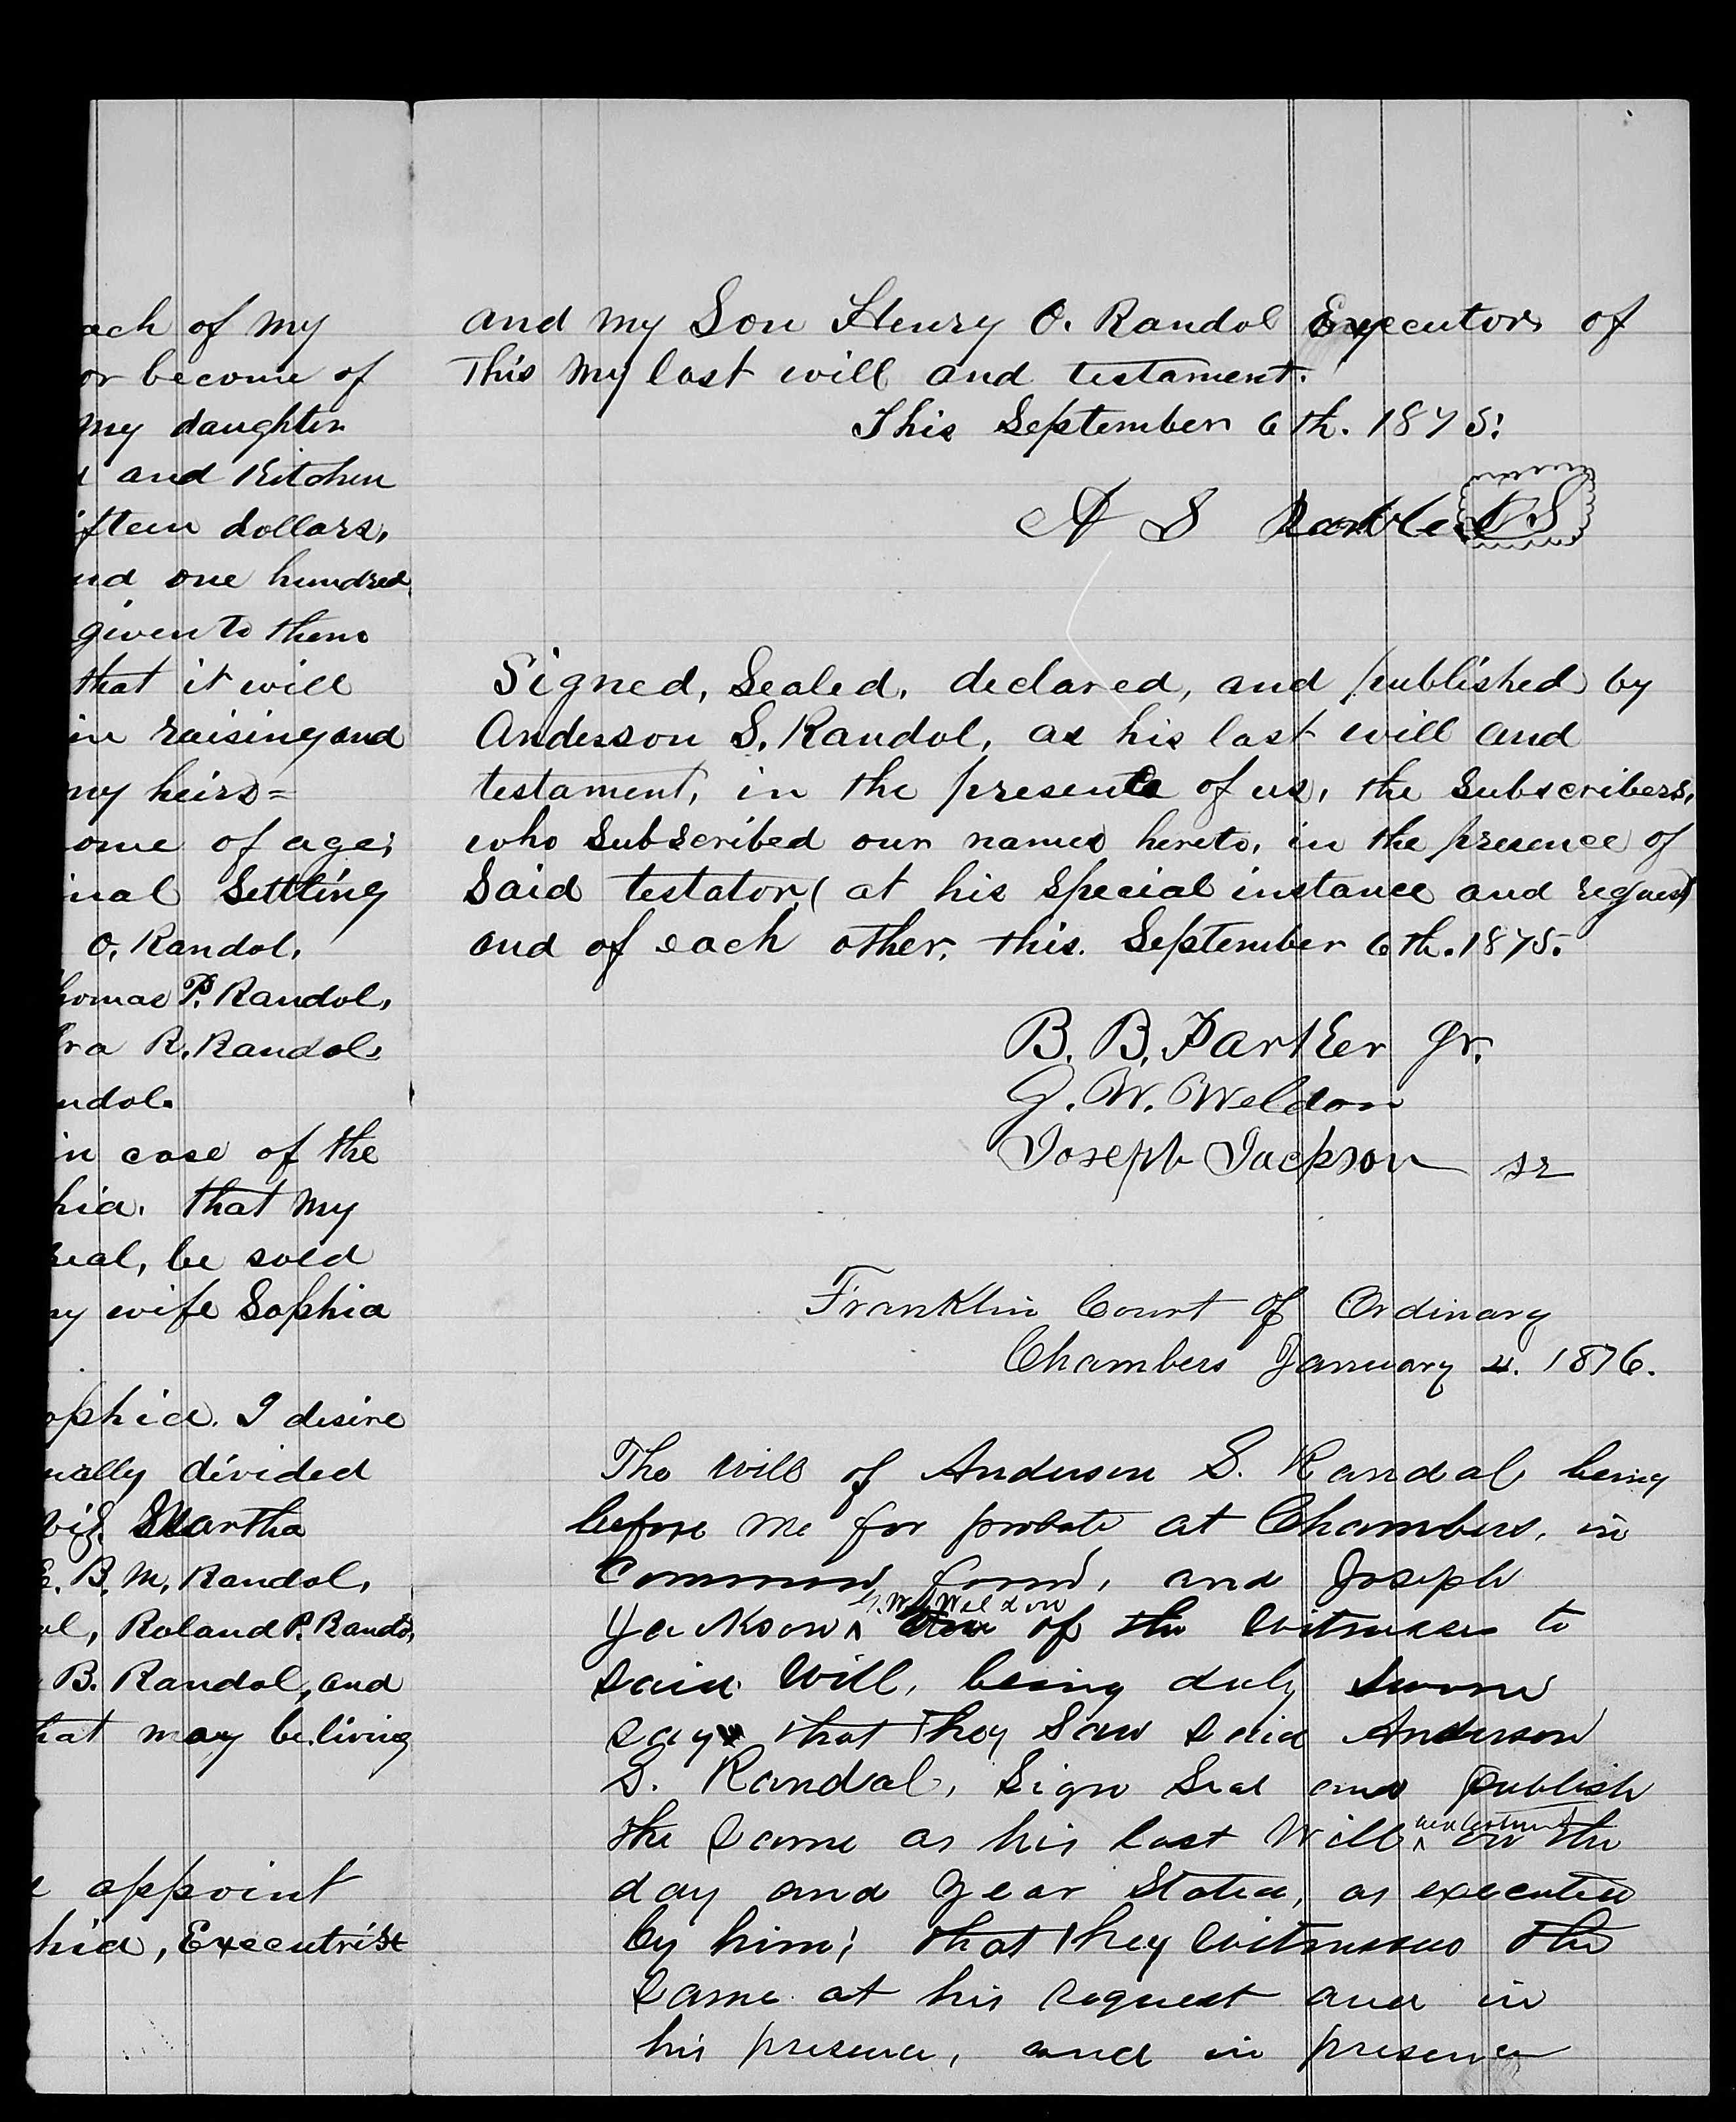 ach of my
or become of
my daughter
and Kitchen
ifteen dollars,
nd one hundred
given to them
that it will
in raising and
my heirs=
ome of age;
inal Settling
O. Randol,
homas P. Randol,
ra R. Randol
ndol.
in case of the
hia. that my
real, be sold
my wife Sophia
ophia. I desire
ually divided
viz. Martha
E. B. M. Randol,
ol, Roland P. Randol,
B. Randol, and
hat may be living
e appoint
hia, Executrix
and my Son Henry O. Randol Executors of
This my last will and testament.
This September 6th. 1875.
A S L.S
Signed, Sealed, declared, and published by
Anderson S. Randol, as his last will and
testament, in the presence of us, the subscribers,
who subscribed our names hereto, in the presence of
Said testator, (at his special instance and request)
and of each other, this. September 6th. 1875.
B. B. Parker Jr.
G. W. Weldon
Joseph Jackson sr
Franklin Court of Ordinary
Chambers January 4. 1876.
The will of Anderson S. Randal being
before me for probate at Chambers, in
Common form, and Joseph
G. W. Weldon
Jackson ^ two of the witnesses to
said Will, being duly sworn
says that they saw said Anderson
S. Randal, sign seal and publish
and testament
the same as his last Will ^ on the
day and year stated, as executed
by him; that they witnessed the
same at his request and in
his presence, and in presence